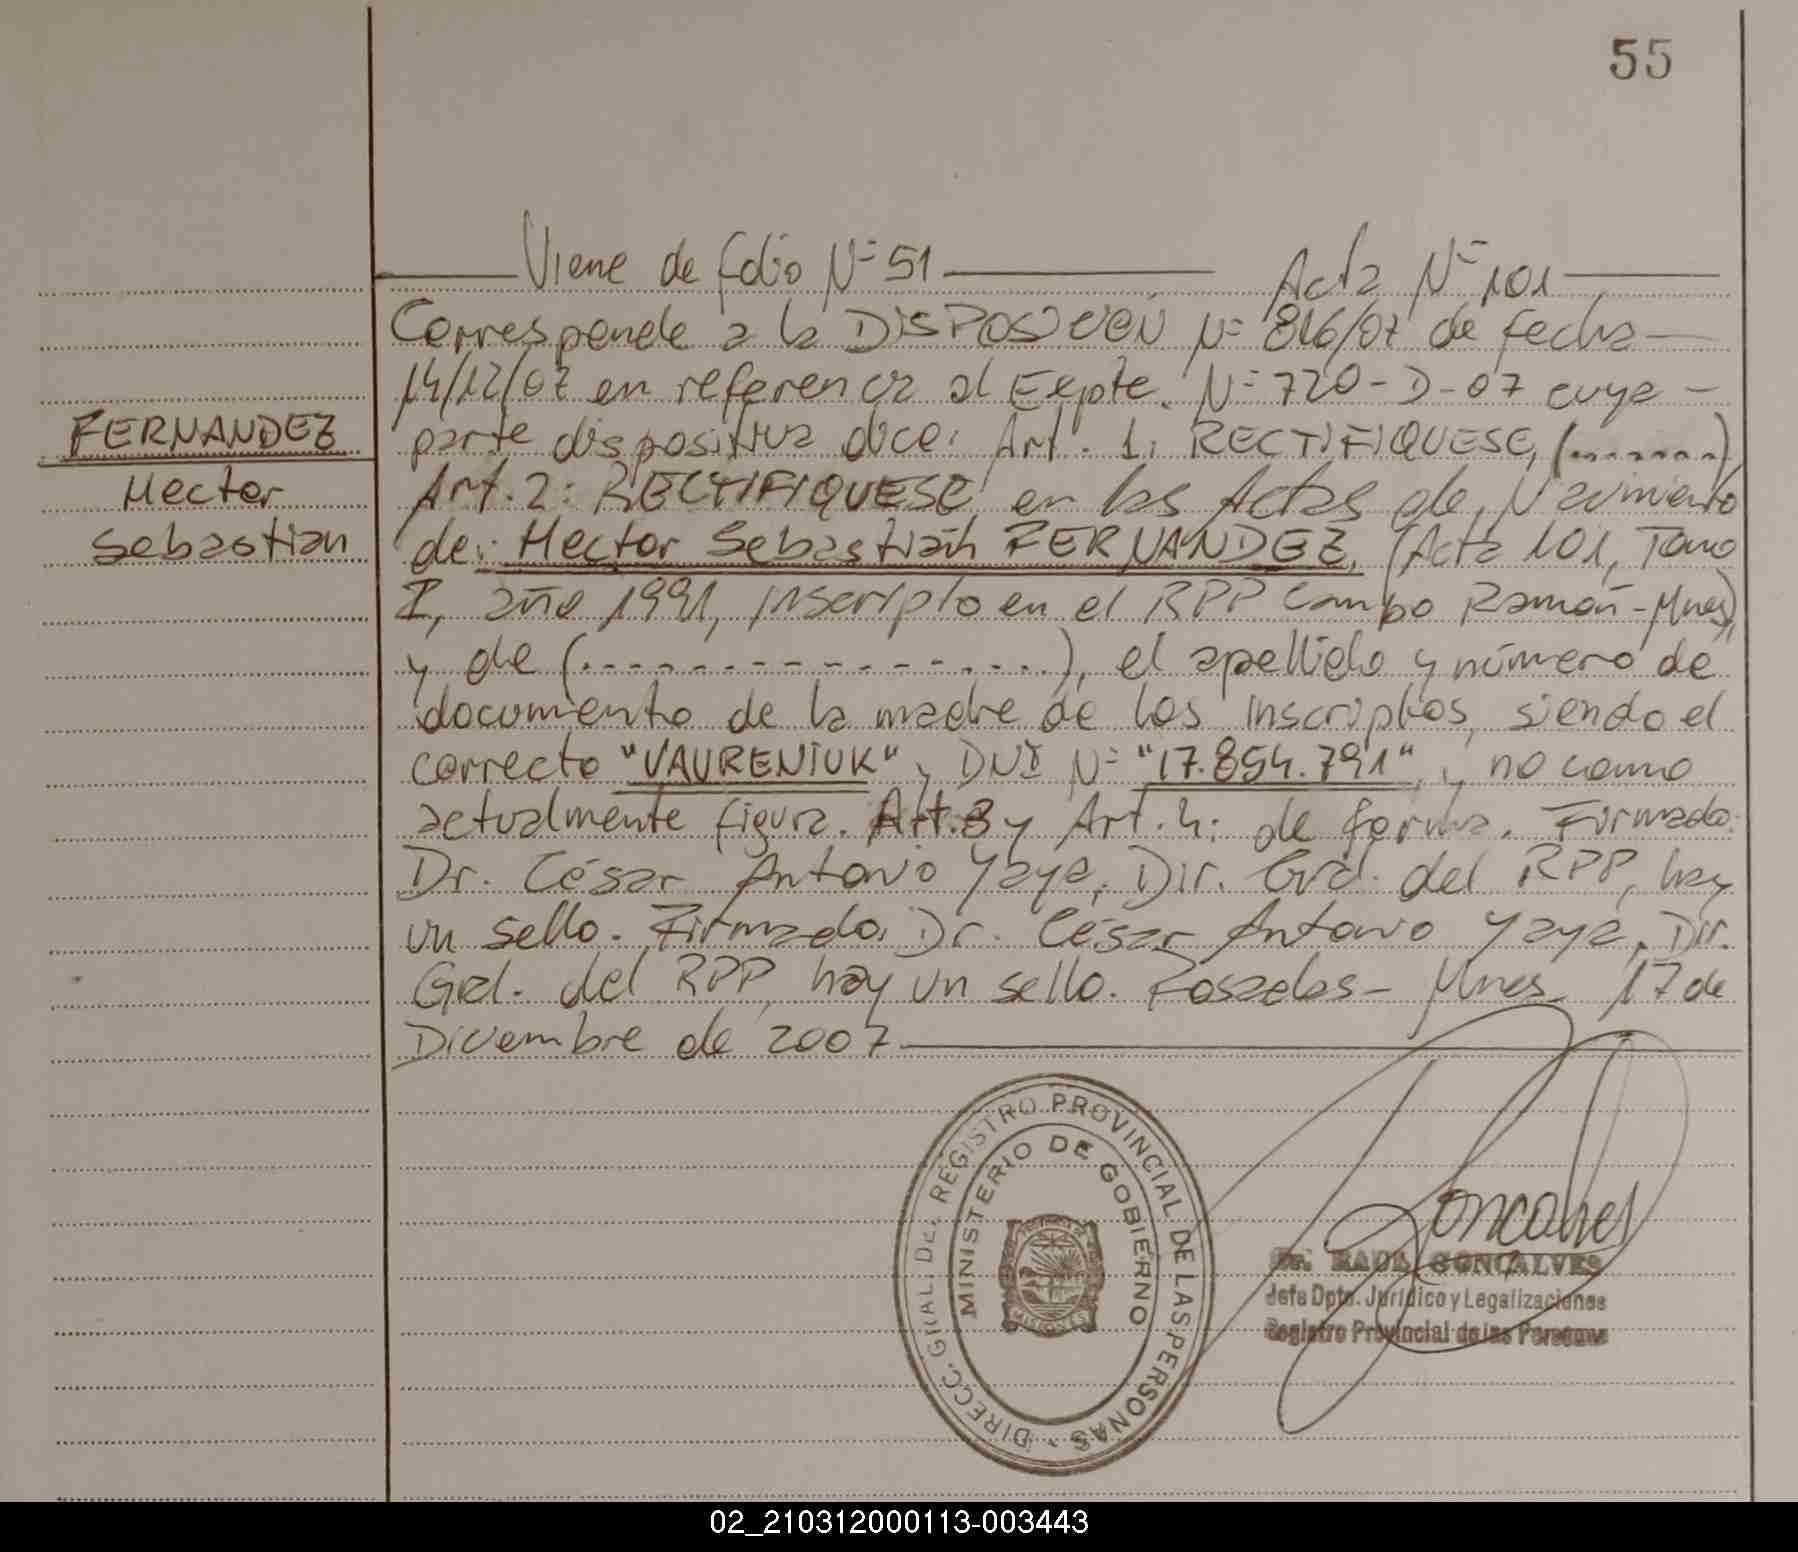 55
Viene de folio Nº 51 Acta Nº 101
Corresponde a la DISPOSICIÓN Nº 816/07 de fecha
14/12/07 en referencia al Expte. Nº 720-D-07 cuya
parte dispositiva dice: Art. 1: RECTIFIQUESE, (........)
FERNANDEZ
Hector
Sebastian
Art. 2: RECTIFIQUESE en las Actas de Nacimiento
de: Hector Sebastián FERNANDEZ, (Acta 101, Tomo
I, año 1991, inscripto en el RPP Campo Ramón-Mnes),
y de (................), el apellido y número de
documento de la madre de los inscriptos, siendo el
correcto "VAURENIUK" y DNI Nº "17.854.791", y no como
actualmente figura. Art. 3 y Art. 4: de forma. Firmado:
Dr. César Antonio Yaya, Dir. Gral. del RPP, hay
un sello. Firmado: Dr. César Antonio Yaya, Dir.
Gral. del RPP, hay un sello. Posadas- Mnes 17 de
Diciembre de 2007
DIRECC. GRAL. DEL REGISTRO PROVINCIAL DE LAS PERSONAS
MINISTERIO DE GOBIERNO
MISIONES
Goncalves
Dr. RAUL GONCALVES
Jefe Dpto. Jurídico y Legalizaciones
Registro Provincial de las Personas
02_210312000113-003443